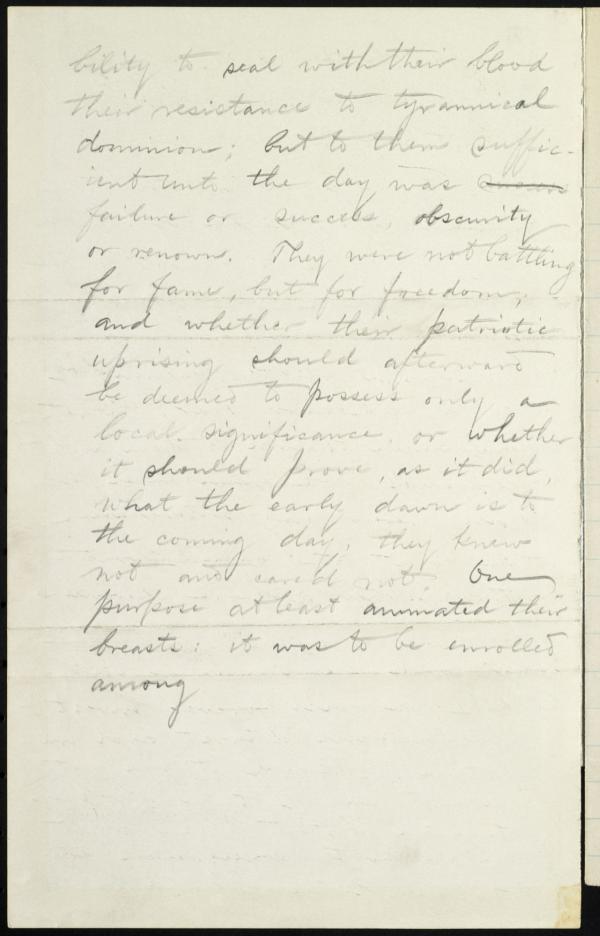 bility to seal with their blood
their resistance to tyrannical
dominion; but to them suffic-
ient unto the day was
failure or success, obscurity
or renown. They were not battling
for fame, but for freedom;
and whether their patriotic
uprising should afterward
be deemed to possess only a
local significance, or whether
it should prove, as it did,
what the early dawn is to
the coming day, they knew
not and cared not. One
purpose at least animated their
breasts: it was to be enrolled
among